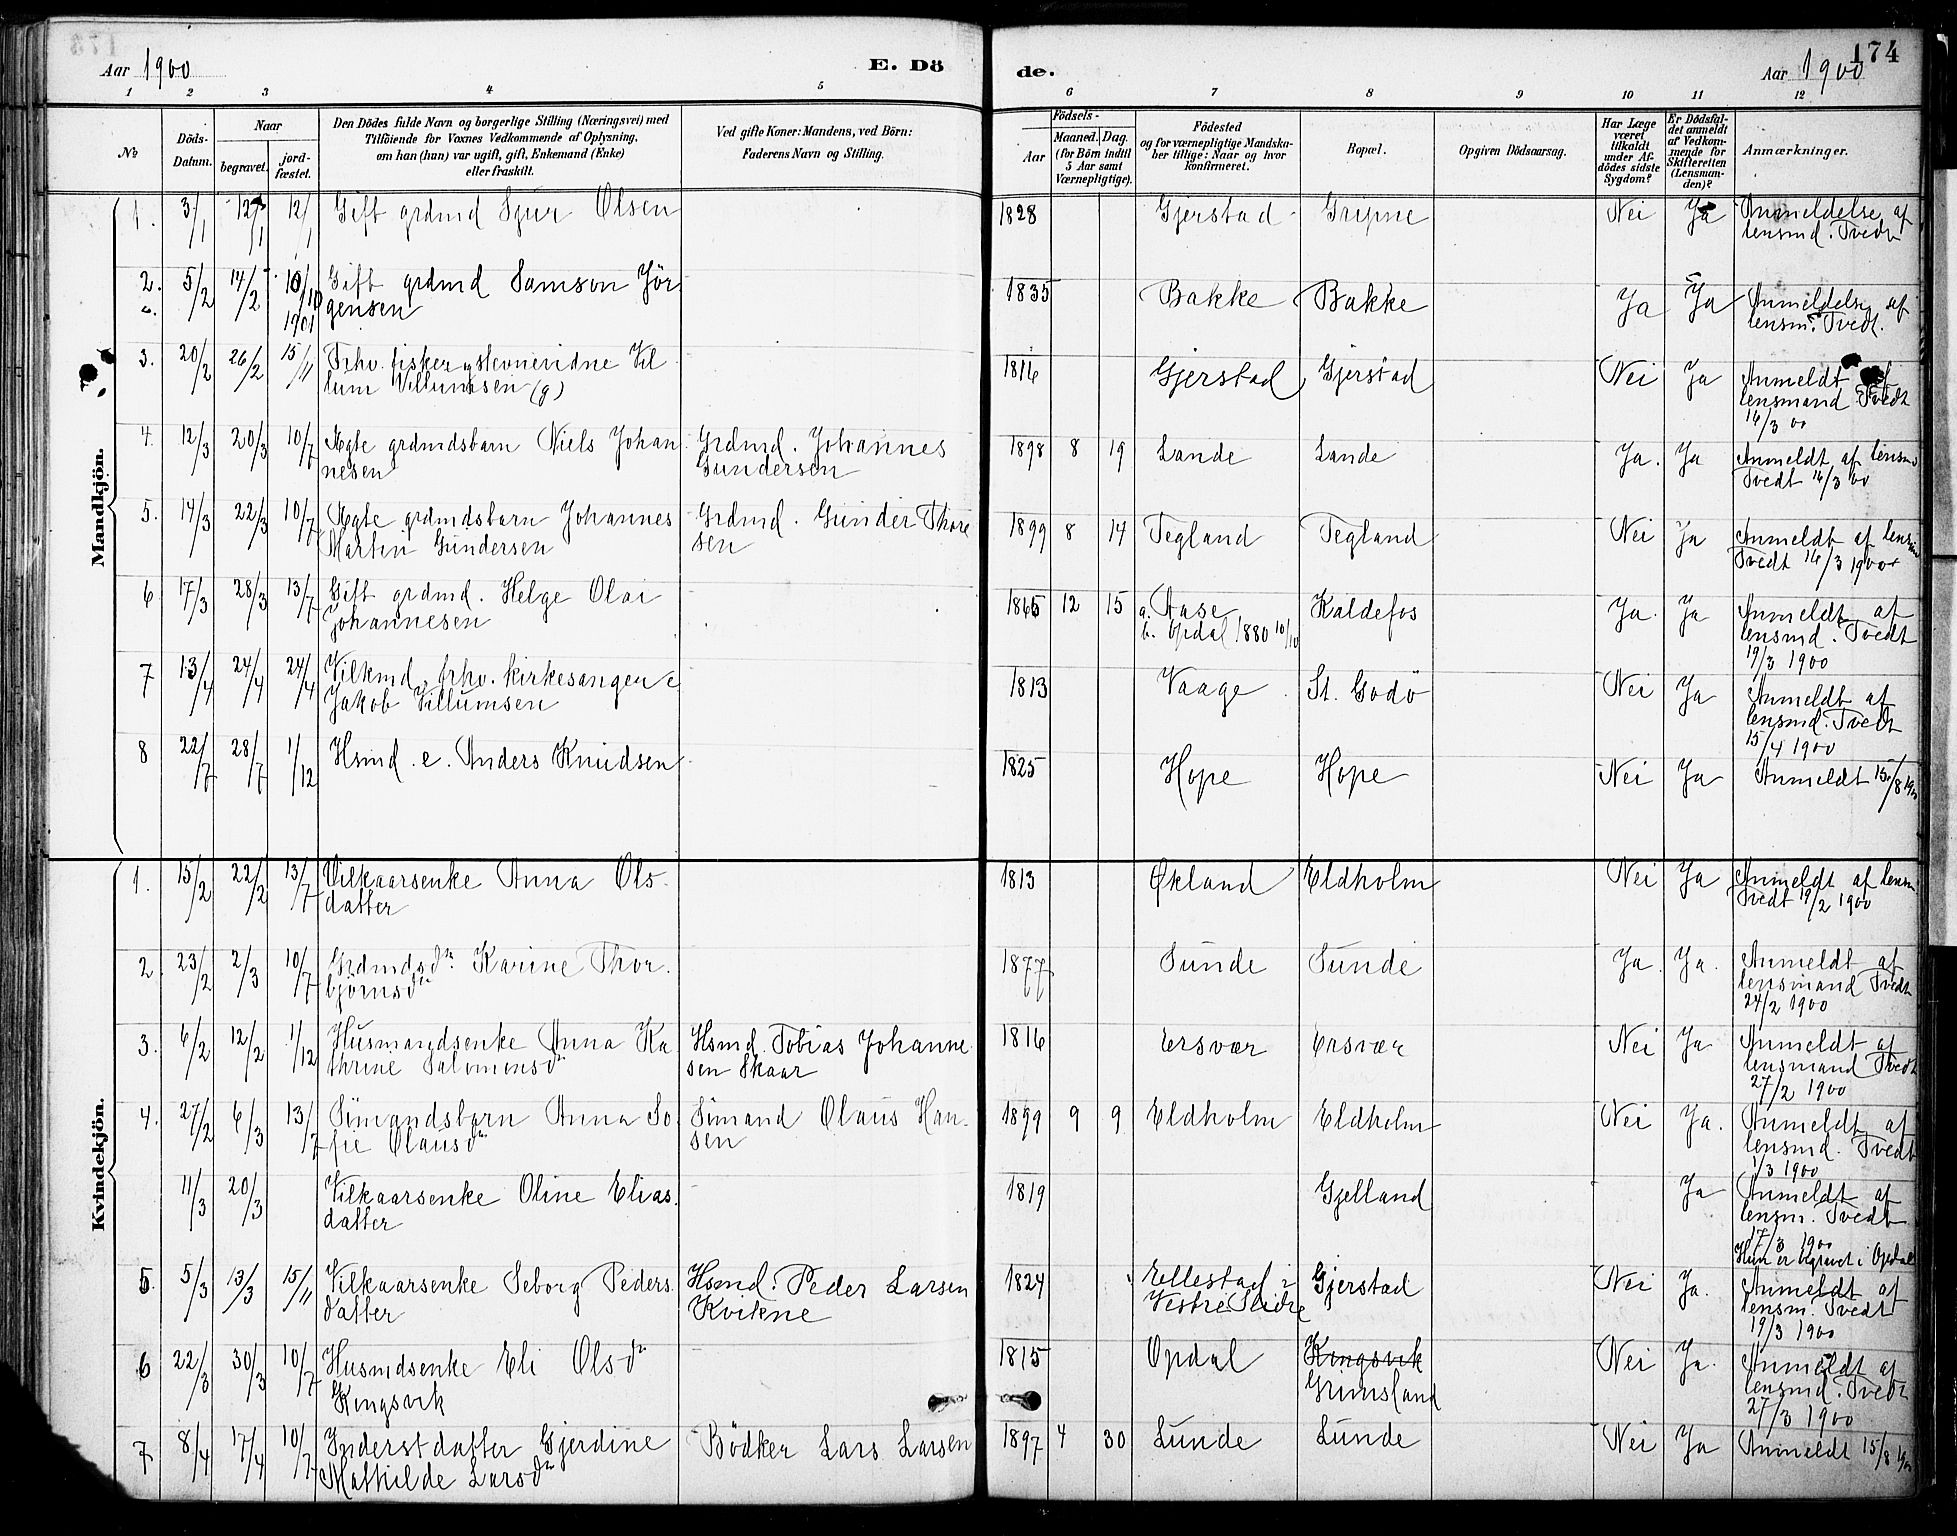 Aar 1900
E. Dö
de.
Aar 1900
174
1 2 3 4 5 6 7 8 9 10 11 12
No.
Döds-Datum.
Naar
begravet.
jord-fæstet.
Den Dödes fulde Navn og borgerlige Stilling (Næringsvei) med
Tilföiende for Voxnes Vedkommende af Oplysning,
om han (hun) var ugift, gift, Enkemand (Enke)
eller fraskilt.
Ved gifte Koner: Mandens, ved Börn:
Faderens Navn og Stilling.
Födsels-
Aar
Maaned. Dag.
(for Börn indtil
5 Aar samt
Værnepligtige).
Födested
og for værnepligtige Mandska-
ber tillige: Naar og hvor
konfirmeret.
Bopæl.
Opgiven Dödsaarsag.
Har Læge
været
tilkaldt
under Af-
dödes sidste
Sygdom?
Er Dödsfal-
det anmeldt
af Vedkom-
mende for
Skifteretten
(Lensman-
den)?
Anmærkninger.
Mandkjön.
1. 3/1 12/1 12/1 Gift grdmd Sjur Olsen 1828 Gjerstad Gripne Nei Ja Anmeldelse af
lensmd. Tvedt
2. 5/2 14/2 10/10 1901 Gift grdmd Samson Jör
gensen 1835 Bakke Bakke Ja Ja Anmeldelse af
lensm. Tvedt.
3. 20/2 26/2 15/11 Frhv. fisker og stevnevidne Vil
lum Villumsen (g) 1816 Gjerstad Gjerstad Nei Ja Anmeldt af
lensmand Tvedt
16/3 00
4. 12/3 20/3 10/7 Ægte grdmdsbarn Niels Johan
nesen Grdmd. Johannes
Gundersen 1898 8 19 Lande Lande Ja. Ja Anmeldt af lensm
Tvedt 16/3 00
5. 14/3 22/3 10/7 Ægte grdmdsbarn Johannes
Martin Gundersen Grdmd. Gunder Thore
sen 1899 8 14 Tegland Tegland Nei Ja Anmeldt af lensm
Tvedt 16/3 1900
6 17/3 28/3 13/7 Gift grdmd. Helge Olai
Johannesen 1865 12 15 a. Aase
b. Opdal 1880 10/10 Kaldefos Ja. Ja Anmeldt af
lensmd. Tvedt
19/3 1900
7 13/4 24/4 24/4 Vilkmd, frhv. kirkesanger e
Jakob Villumsen 1813 Vaage St. Godö Nei Ja Anmeldt af
lensmd. Tvedt
15/4 1900
8 22/7 28/7 1/12 Hsmd. e. Anders Knudsen 1825 Hope Hope Nei Ja Anmeldt 15/8 1900
Kvindekjön.
1. 15/2 22/2 13/7 Vilkaarsenke Anna Ols
datter 1813 Økland Eldholm Nei Ja Anmeldt af lensm
Tvedt 19/2 1900
2 23/2 2/3 10/7 Grdmdsdr. Karine Thor
björnsdr 1877 Sunde Sunde Ja. Ja. Anmeldt af
lensmand Tvedt
24/2 1900
3. 6/2 12/2 1/12 Husmandsenke Anna Ka
thrine Salomonsdr Hsmd. Tobias Johanne
sen Skaar 1816 Ersvær Ersvær Nei Ja Anmeldt af
lensmand Tvedt
27/2 1900
4. 27/2 6/3 13/7 Simandsbarn Anna So
fie Olausdr Simand Olaus Han
sen 1899 9 9 Eldholm Eldholm Nei Ja. Anmeldt af
lensmd. Tvedt
1/3 1900
11/3 20/3 Vilkaarsenke Oline Elias
datter 1819 Gjelland Ja Anmeldt af
lensm. Tvedt
17/3 1900
Hun er begravet i Opdal
5 5/3 13/3 15/11 Vilkaarsenke Seborg Peders
datter Hsmd. Peder Larsen
Kvikne 1824 Ellestad i
Vestre Slidre Gjerstad Nei Ja. Anmeldt af
lensm. Tvedt
19/3 1900
6 22/3 30/3 10/7 Husmdsenke Eli Olsdr
Kongsvik 1815 Opdal Kongsvik
Grimsland Nei Ja. Anmeldt af
lensmd. Tvedt
27/3 1900
7 8/4 17/4 10/7 Inderstdatter Gjerdine
Mathilde Larsdr Bödker Lars Larsen 1897 4 30 Lunde Lunde Nei Ja Anmeldt 15/8 1900